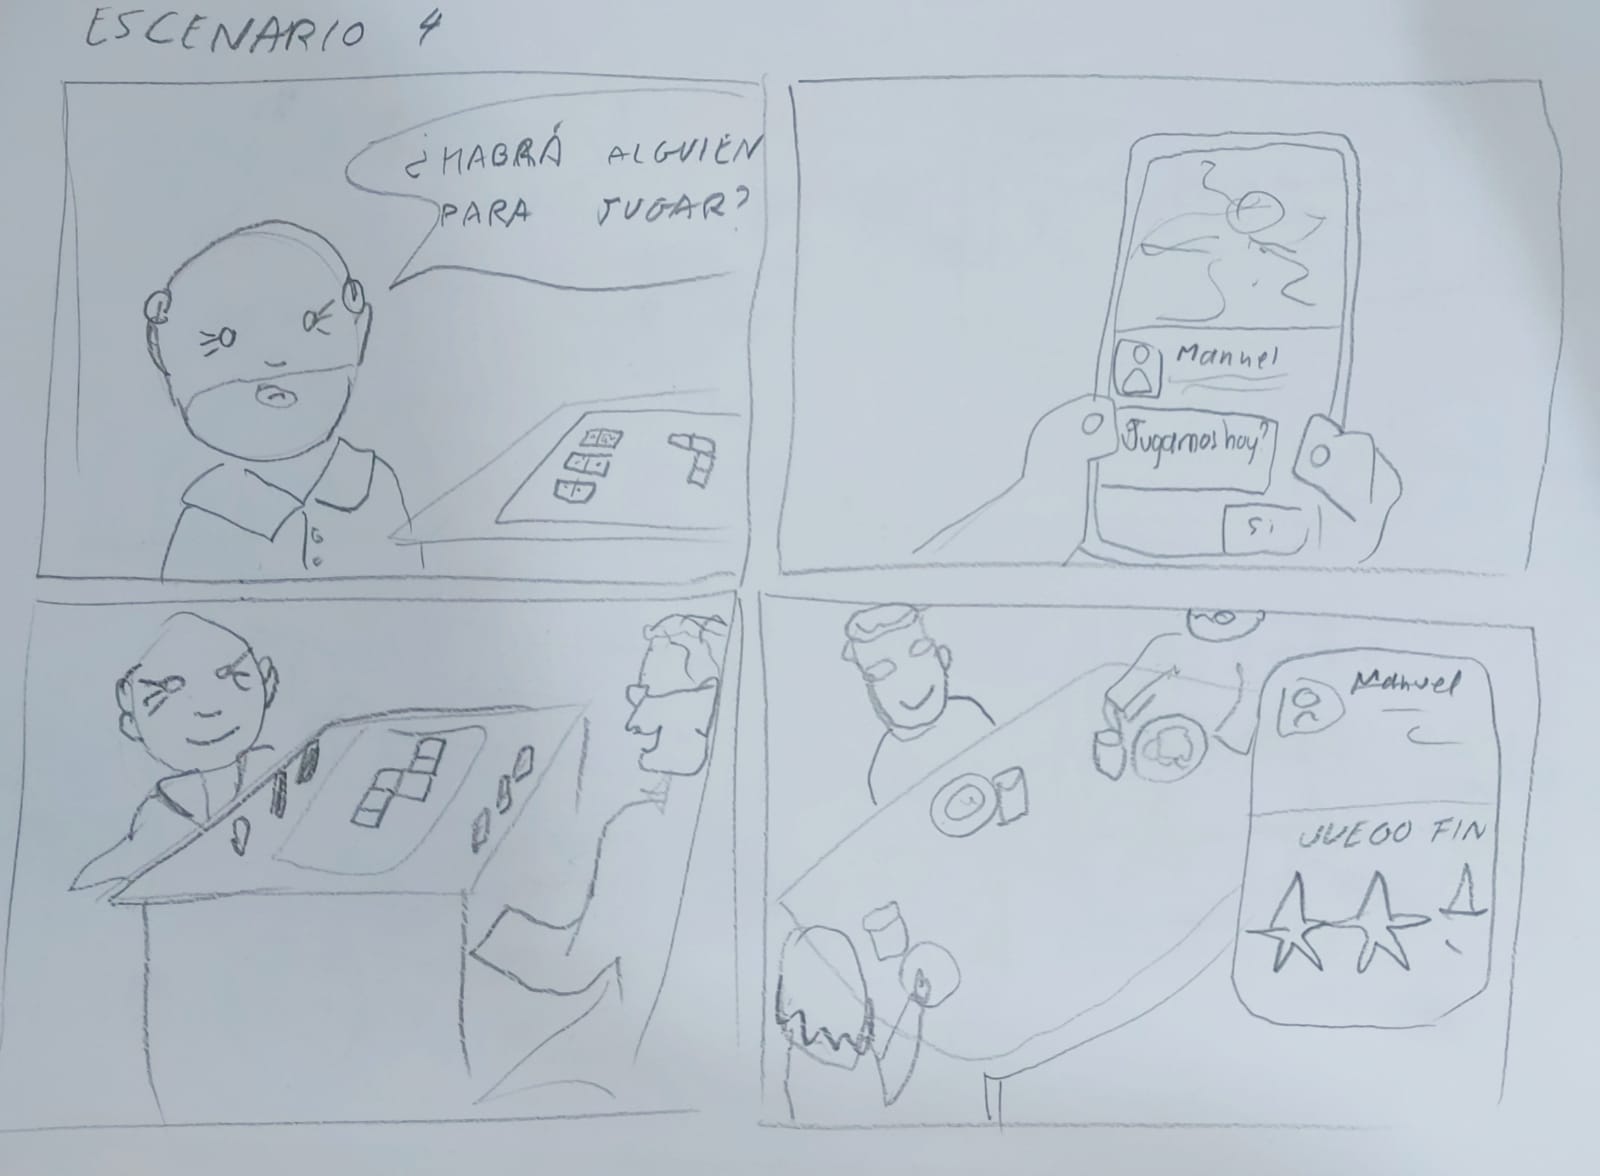 ESCENARIO 4
¿HABRÁ ALGUIÉN
PARA JUGAR?
Manuel
Jugamos hoy?
Si
Manuel
JUEGO FIN